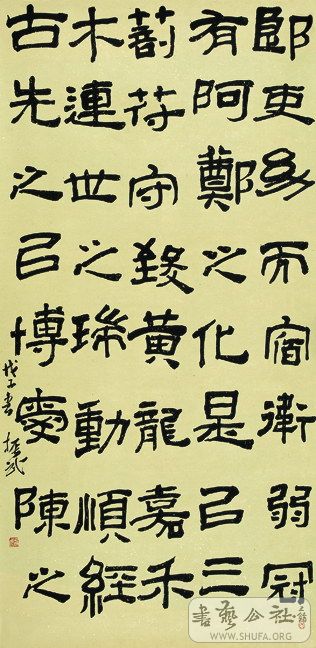 郎吏幼而宿衛弱冠
有阿鄭之化是㠯三
剖苻守致黃龍嘉禾
木連世之瑞動順經
古先之㠯博愛陳之
戊子書 振武
書藝公社
WWW.SHUFA.ORG